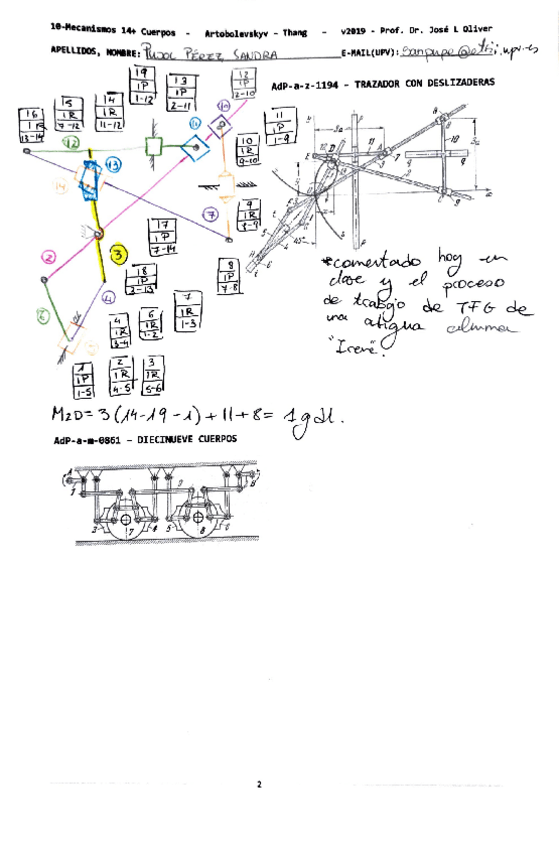 10-Mecanismos 14+ Cuerpos - Artobolevskyv - Thang - v2019 - Prof. Dr. José L Oliver
APELLIDOS, NOMBRE: PUJOL PÉREZ SANDRA E-MAIL(UPV):
AdP-a-z-1194 - TRAZADOR CON DESLIZADERAS
19
1P
1-12
13
1P
2-11
12
1P
12-10
16
13-14
15
1R
7-12
14
1R
11-12
11
1P
1-9
10
1R
9-10
9
1R
8
1P
7-8
17
1P
7-14
18
1P
7
1R
1-3
4
1R
3-4
6
1R
1-2
1
1P
1-5
2
1R
4-5
3
1R
5-6
*comentado hoy en
clase y el proceso
de trabajo de TFG de
una atigua alumna
"Irene".
M2D= 3(14-19-1)+11+8= 1gdl.
AdP-a-m-0861 - DIECINUEVE CUERPOS
2